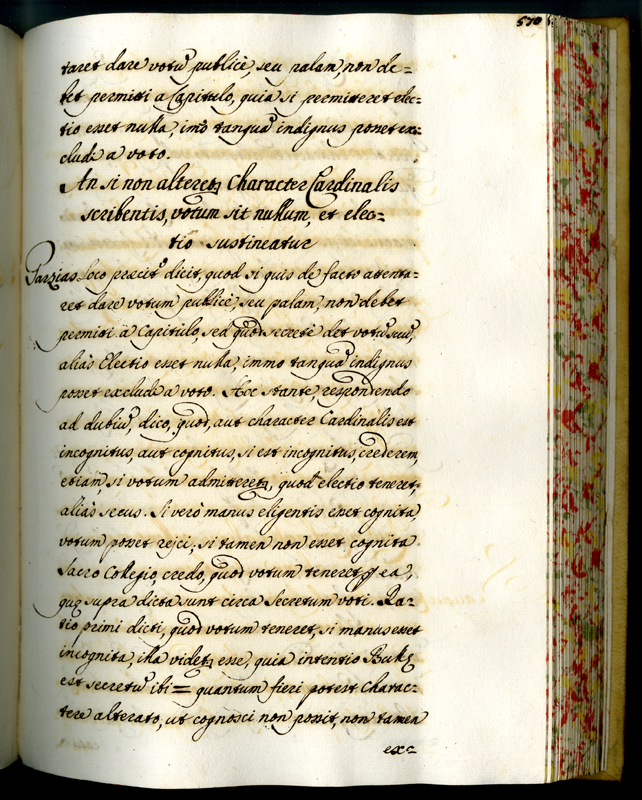 570
taret dare votũ publicè, seu palam, non de=
bet permitti a Capitulo, quia si permitteret elec-
tio esset nulla, imò tanquã indignus posset ex-
cludi a voto.
An si non alteretꝛ Character Cardinalis
scribentis, votum sit nullum, et elec=
tio sustineatur
Garzias loco precitº dicit, quod si quis de facto attenta=
ret dare votum publicè, seu palam, non debet
permitti à Capitulo, sed quod secretè det votũ suũ,
aliàs Electio esset nulla, immo tanquã indignus
posset excludi a voto. Hoc stante, respondendo
ad dubiũ, dico, quod, aut character Cardinalis est
incognitus, aut cognitus, si est incognitus, crederem,
etiam, si votum admitteretꝛ, quod electio teneret,
aliàs secus. Si verò manus eligentis esset cognita,
votum posset rejci, si tamen non esset cognita
Sacro Collegio, credo, quod votum teneret ꝑ ea,
quę supra dicta sunt circa Secretum voti. Ra-
tio primi dicti, quod votum teneret, si manus esset
incognita, illa videtꝛ esse, quia intentio Bullę
est secretũ ibi = quantum fieri potest Charac-
tere alterato, ut cognosci non possit, non tamen
ex-